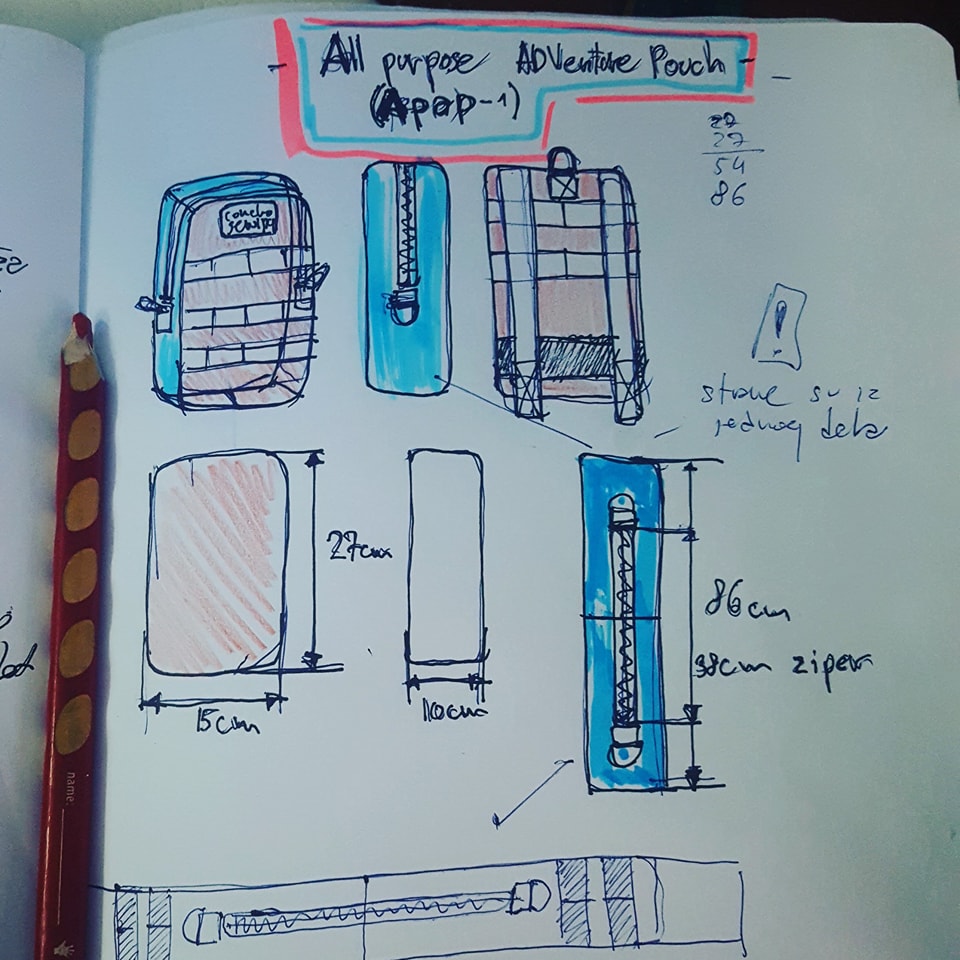 All purpose ADVenture Pouch
(Apap-1)
27
27
54
86
!
strane su iz
jednog dela
27cm
15cm
10cm
86cm
38cm ziper
name: